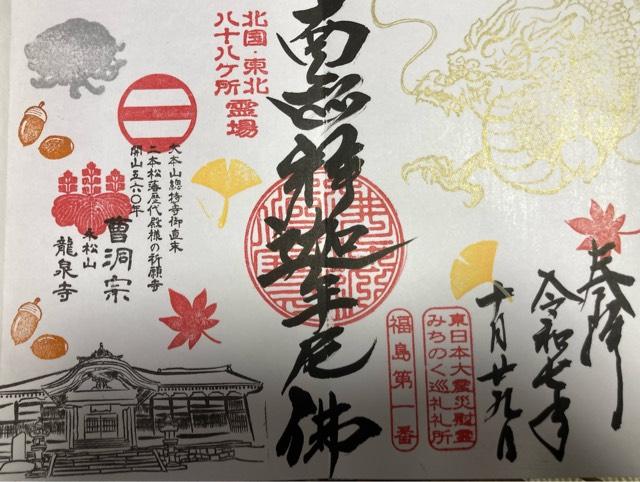 奉拝
令和七年
十月廿九日
東日本大震災慰霊
みちのく巡礼札所
福島第一番
南無釋迦牟尼佛
北国・東北
八十八ケ所霊場
大本山總持寺御直末
二本松藩歴代殿様の祈願寺
開山五六〇年
曹洞宗
永松山
龍泉寺